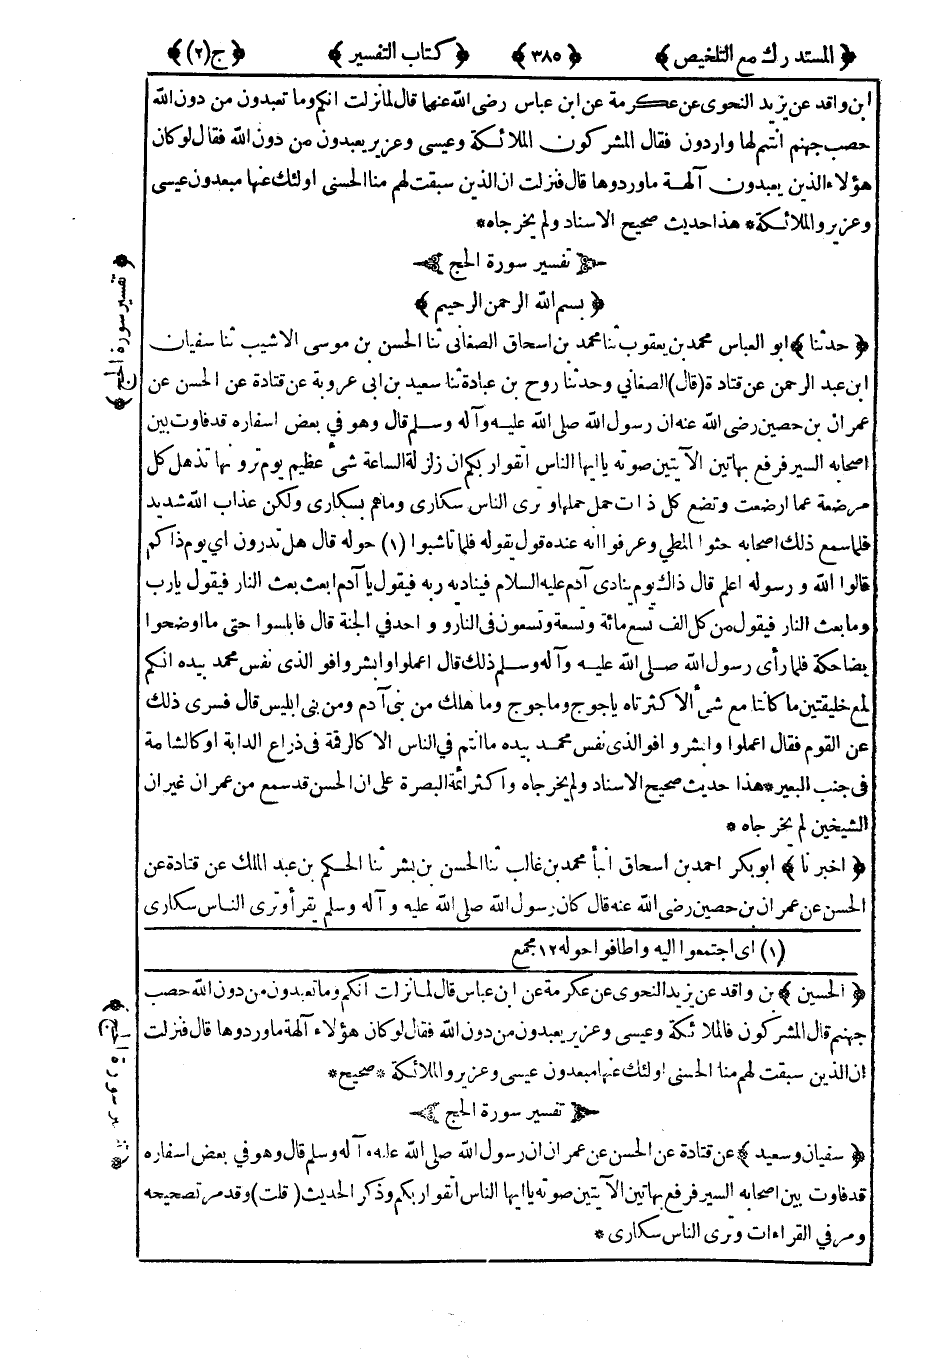 ﴿ المستدرك مع التلخيص ﴾ ﴿ ٣٨٥ ﴾ ﴿ كتاب التفسير ﴾ ﴿ ج (٢) ﴾
ابن واقد عن يزيد النحوى عن عكرمة عن ابن عباس رضى الله عنهما قال لما نزلت انكم وما تعبدون من دون الله
حصب جهنم انتم لها واردون فقال المشركون الملائكة وعيسى وعزير يعبدون من دون الله فقال لو كان
هؤلاء الذين يعبدون آلهة ما وردوها قال فنزلت ان الذين سبقت لهم منا الحسنى اولئك عنها مبعدون عيسى
وعزير والملائكة* هذا حديث صحيح الاسناد ولم يخرجاه*
تفسير سورة الحج
﴿ بسم الله الرحمن الرحيم ﴾
﴿ حدثنا ﴾ ابو العباس محمد بن يعقوب ثنا محمد بن اسحاق الصغانى ثنا الحسن بن موسى الاشيب ثنا سفيان
ابن عبد الرحمن عن قتادة (قال) الصغانى وحدثنا روح بن عبادة ثنا سعيد بن ابى عروبة عن قتادة عن الحسن عن
عمران بن حصين رضى الله عنه ان رسول الله صلى الله عليه وآله وسلم قال وهو في بعض اسفاره قد فاوت بين
اصحابه السير فرفع بهاتين الآيتين صوته يا ايها الناس اتقوا ربكم ان زلزلة الساعة شىء عظيم يوم ترونها تذهل كل
مرضعة عما ارضعت وتضع كل ذات حمل حملها وترى الناس سكارى وما هم بسكارى ولكن عذاب الله شديد
فلما سمع ذلك اصحابه حثوا المطي وعرفوا انه عنده قول يقوله فلما تاشبوا (١) حوله قال هل تدرون اي يوم ذاكم
قالوا الله ورسوله اعلم قال ذاك يوم ينادى آدم عليه السلام فيناديه ربه فيقول يا آدم ابعث بعث النار فيقول يارب
وما بعث النار فيقول من كل الف تسع مائة وتسعة وتسعون فى النار و احد في الجنة قال فابلسوا حتى ما اوضحوا
بضاحكة فلما رأى رسول الله صلى الله عليه وآله وسلم ذلك قال اعملوا وابشروا فوالذى نفس محمد بيده انكم
لمع خليقتين ما كانتا مع شىء الا كثرتاه ياجوج وماجوج وما هلك من بنى آدم ومن بنى ابليس قال فسرى ذلك
عن القوم فقال اعملوا وابشروا فوالذى نفس محمد بيده ما انتم في الناس الا كالرقمة فى ذراع الدابة او كالشامة
فى جنب البعير* هذا حديث صحيح الاسناد ولم يخرجاه واكثر ائمة البصرة على ان الحسن قد سمع من عمران غير ان
الشيخين لم يخرجاه *
﴿ اخبرنا ﴾ ابو بكر احمد بن اسحاق انبأ محمد بن غالب ثنا الحسن بن بشر ثنا الحكم بن عبد الملك عن قتادة عن
الحسن عن عمران بن حصين رضى الله عنه قال كان رسول الله صلى الله عليه وآله وسلم يقرأ وترى الناس سكارى
(١) اى اجتمعوا اليه واطافوا حوله ١٢ مجمع
﴿ الحسين ﴾ بن واقد عن يزيد النحوى عن عكرمة عن ابن عباس قال لما نزلت انكم وما تعبدون من دون الله حصب
جهنم قال المشركون فالملائكة وعيسى وعزير يعبدون من دون الله فقال لو كان هؤلاء آلهة ما وردوها قال فنزلت
ان الذين سبقت لهم منا الحسنى اولئك عنها مبعدون عيسى وعزير والملائكة * صحيح*
تفسير سورة الحج
﴿ سفيان وسعيد ﴾ عن قتادة عن الحسن عن عمران ان رسول الله صلى الله عليه وآله وسلم قال وهو في بعض اسفاره
قد فاوت بين اصحابه السير فرفع بهاتين الآيتين صوته يا ايها الناس اتقوا ربكم وذكر الحديث (قلت) وقد مر تصحيحه
ومر في القراءات وترى الناس سكارى *
﴿ تفسير سورة الحج ﴾